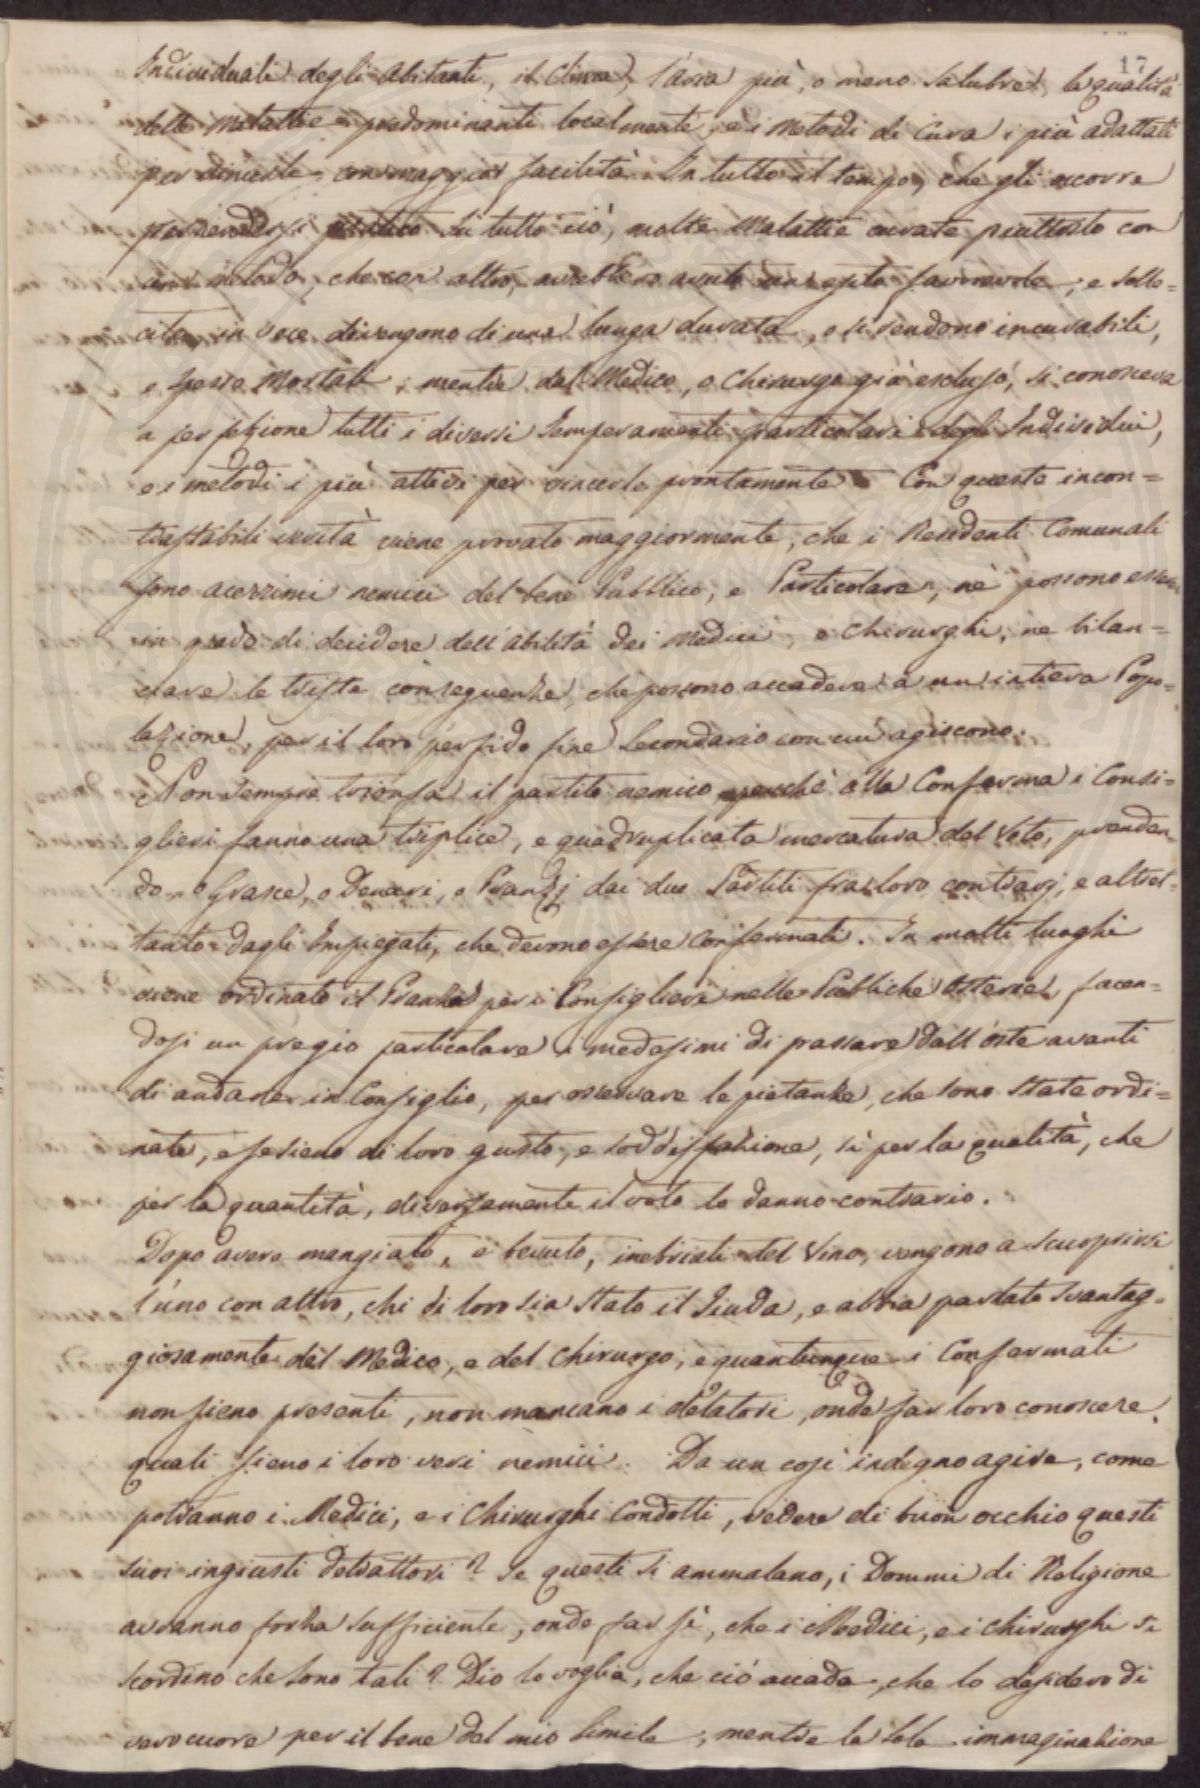 17
Individuali degli abitanti, il clima, l'aria più, o meno salubre, la qualità
delle malattie predominanti localmente, ed i metodi di cura i più adattati
per vincerle con maggior facilità. In tutto il tempo, che gli occorre
per rendersi pratico di tutto ciò, molte malattie curate piuttosto con
un metodo, che con altro, avrebbero avuto un esito favorevole, e solle=
cito, in vece divengono di una lunga durata, o si rendono incurabili,
e spesso mortali; mentre dal Medico, o Chirurgo già escluso, si conosceva
a perfezione tutti i diversi temperamenti particolari degli Individui,
e i metodi i più attivi per vincerle prontamente. Con queste incon=
trastabili verità viene provato maggiormente, che i Residenti Comunali
sono acerrimi nemici del bene Pubblico, e Particolare, nè possono essere
in grado di decidere dell'abilità dei Medici, e Chirurghi, ne bilan=
ciare le triste conseguenze, che possono accadere a un'intiera Popo=
lazione, per il loro perfido fine secondario con cui agiscono.
Non sempre trionfa il partito nemico perchè alla Conferma i Consi=
glieri fanno una triplice, e quadruplicata mercatura del Voto, prenden=
do o Grasce, o Denari, o Pranzj dai due Partiti fra loro contrarj, e altret=
tanto dagli Impiegati, che devono essere confermati. In molti luoghi
viene ordinato il Pranzo per i Consiglieri nelle Pubbliche Osterie, facen=
dosi un pregio particolare i medesimi di passare dall'oste avanti
di andare in Consiglio, per osservare le pietanze, che sono state ordi=
nate, e se sieno di loro gusto, e soddisfazione, sì per la qualità, che
per la quantità, diversamente il voto lo danno contrario.
Dopo avere mangiato, e bevuto, inebriati del Vino, vengono a scuoprirsi
l'uno con altro, chi di loro sia stato il Giuda, e abbia parlato svantag=
giosamente del Medico, e del Chirurgo, e quantunque i Confermati
non sieno presenti, non mancano i delatori, onde far loro conoscere,
quali sieno i loro veri nemici. Da un così indegno agire, come
potranno i Medici, e i Chirurghi Condotti, vedere di buon occhio questi
suoi ingiusti detrattori? Se questi si ammalano, i Dommi di Religione
avranno forza sufficiente, onde far sì, che i Medici, e i Chirurghi si
scordino che sono tali? Dio lo voglia, che ciò accada, che lo desidero di
vero cuore per il bene del mio simile; mentre la sola immaginazione